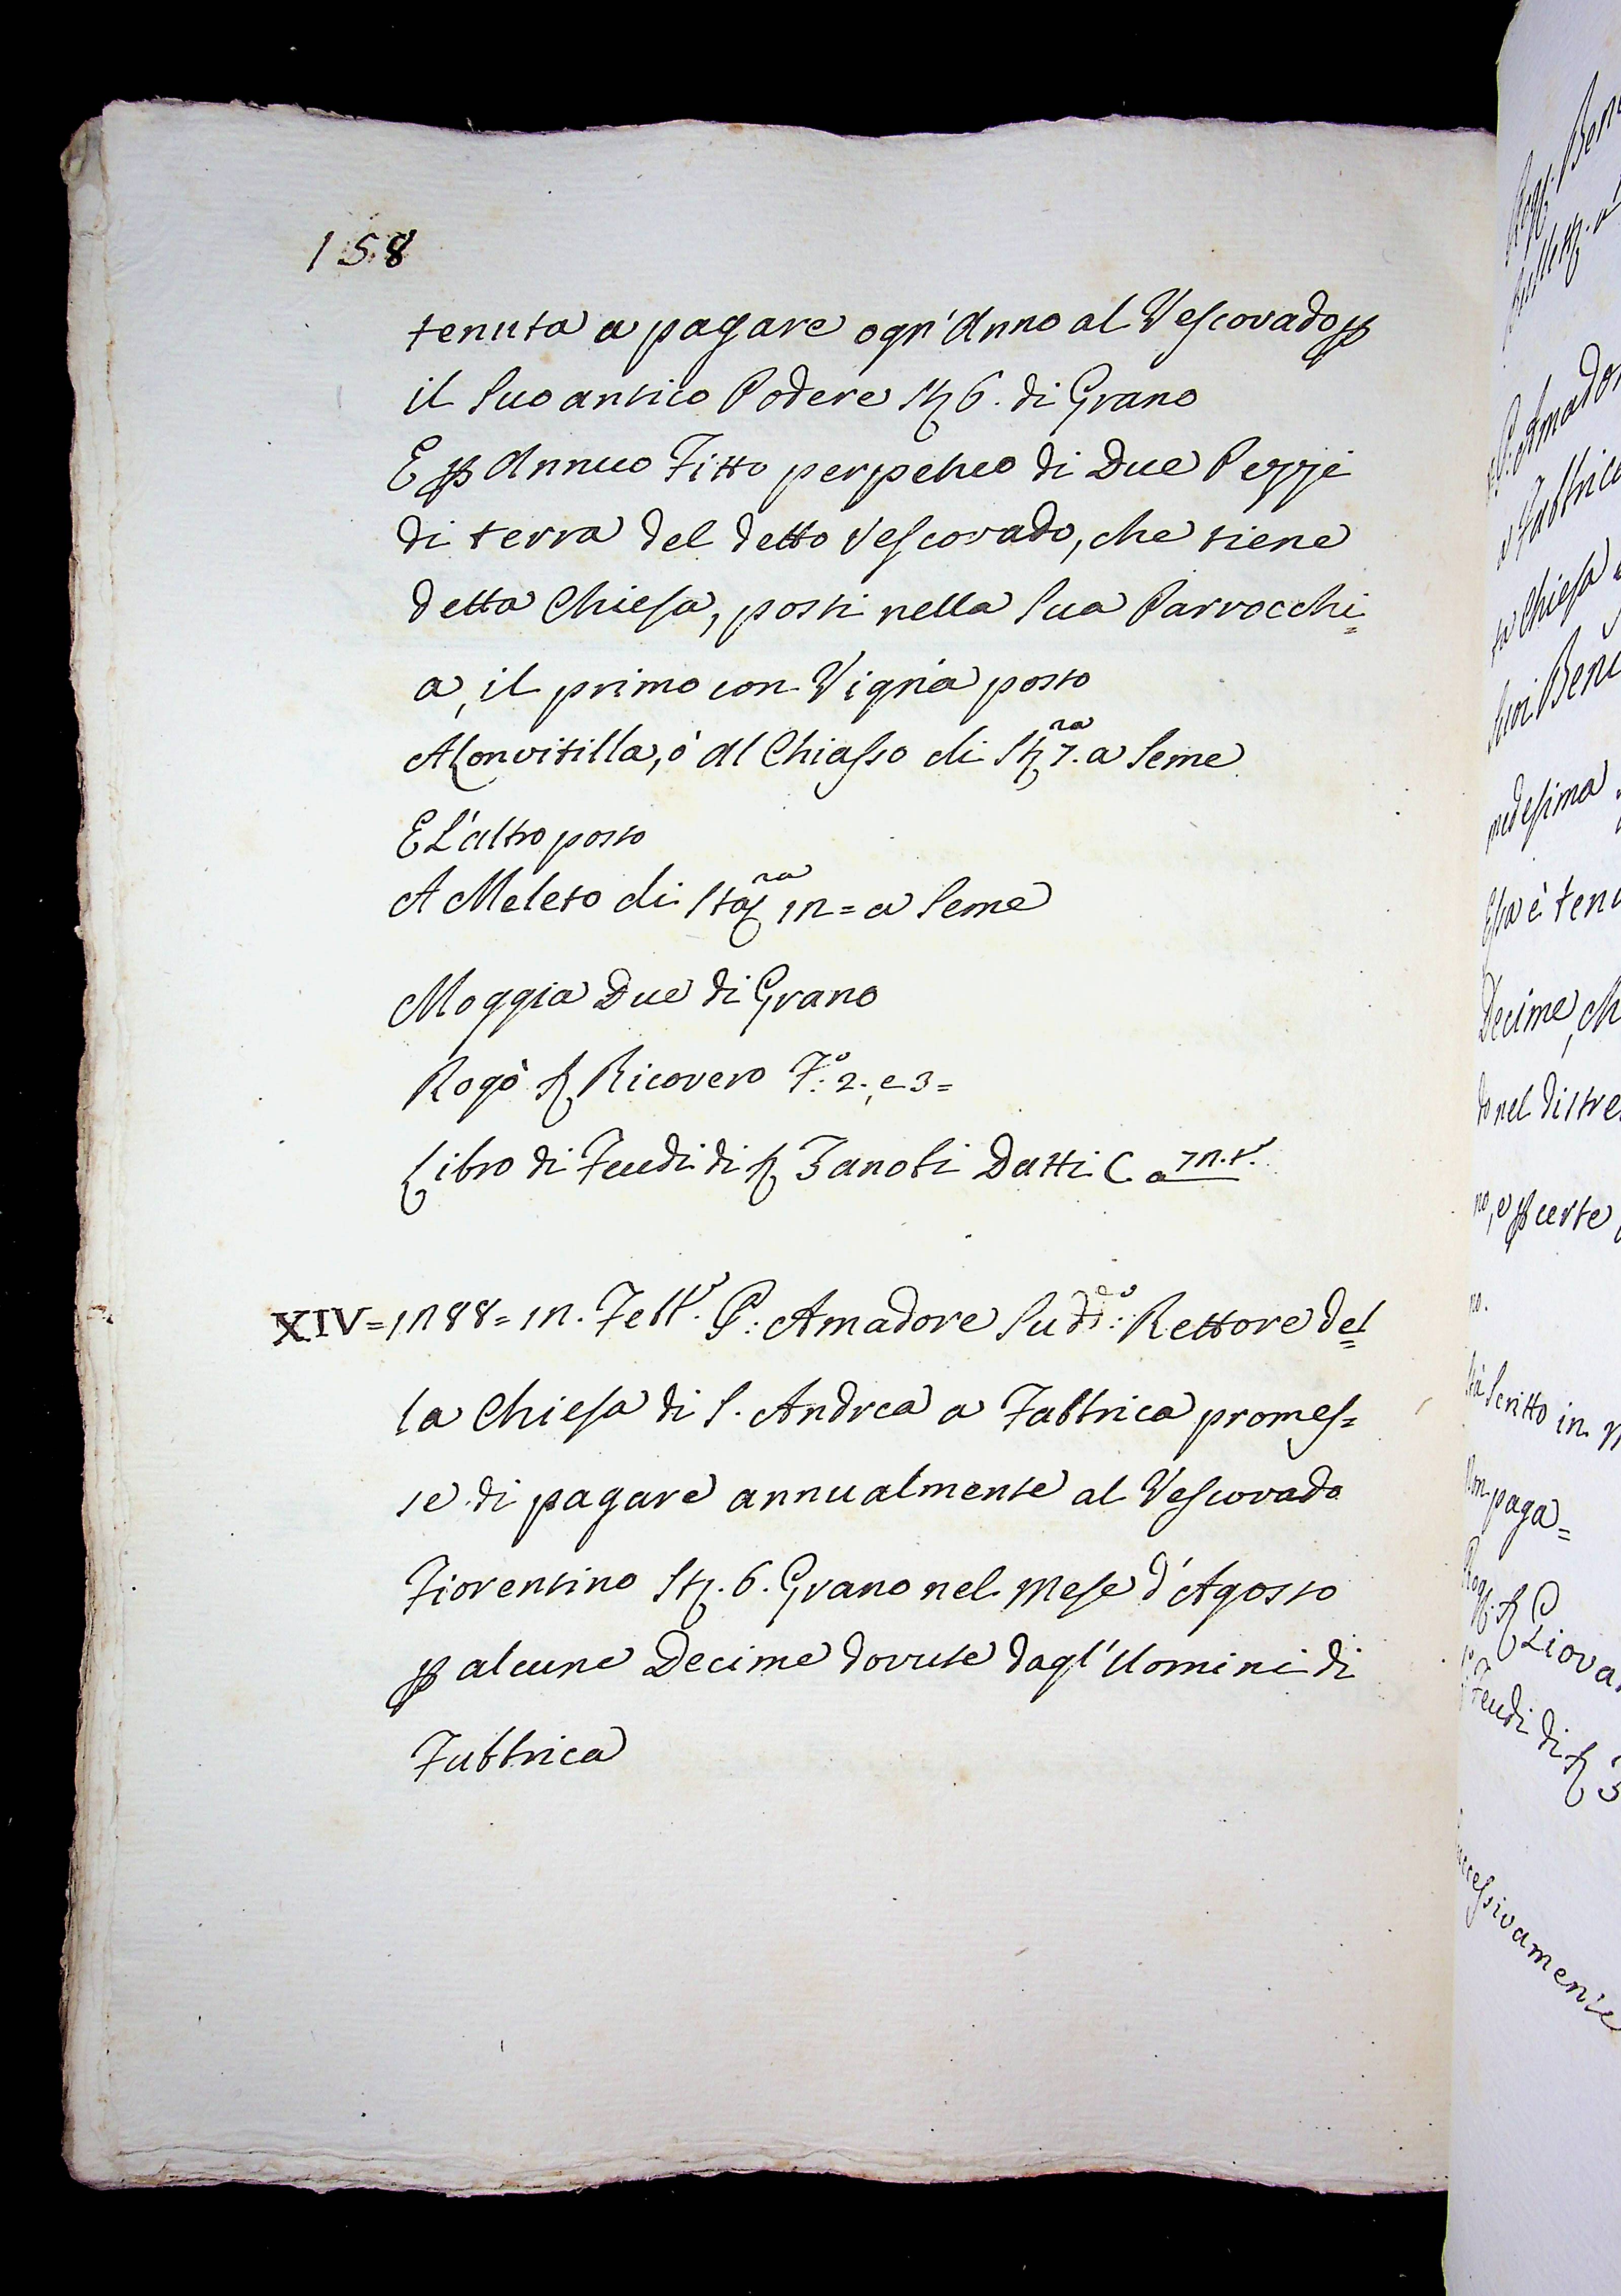 158
tenuta a pagare ogn'Anno al Vescovado p
il Suo antico Podere St 6. di Grano
E p Annuo Fitto perpetuo di Due Pezzi
di terra del detto Vescovado, che tiene
detta Chiesa, posti nella Sua Parrocchi=
a, il primo con Vigna posto
A Convitilla, ò Al Chiasso di St.ra 7. a Seme
E L'altro posto
A Meleto di Sta.ra 12= a Seme
Moggia Due di Grano
Rogò S. Ricovero F.o: 2. e 3=
Libro di Feudi di S. Zanobi Datti C. a 72.t.
XIV=1288= 12. Febb.o P: Amadore Sud.do: Rettore del=
la Chiesa di S. Andrea a Fabbrica promes=
se di pagare annualmente al Vescovado
Fiorentino St. 6. Grano nel Mese d'Agosto
p alcune Decime dovute dagl'Uomini di
Fabbrica
Rog. S. Ben
P: Amador
a Fabbrica
ta Chiesa
suoi Beni
medesima
Essa è tenu
Decime, ch
do nel distre
no, e p certe
no.
Stà Scritto in
Non paga=
Rog. S. Giova
Feudi di S. Z
uccessivamente